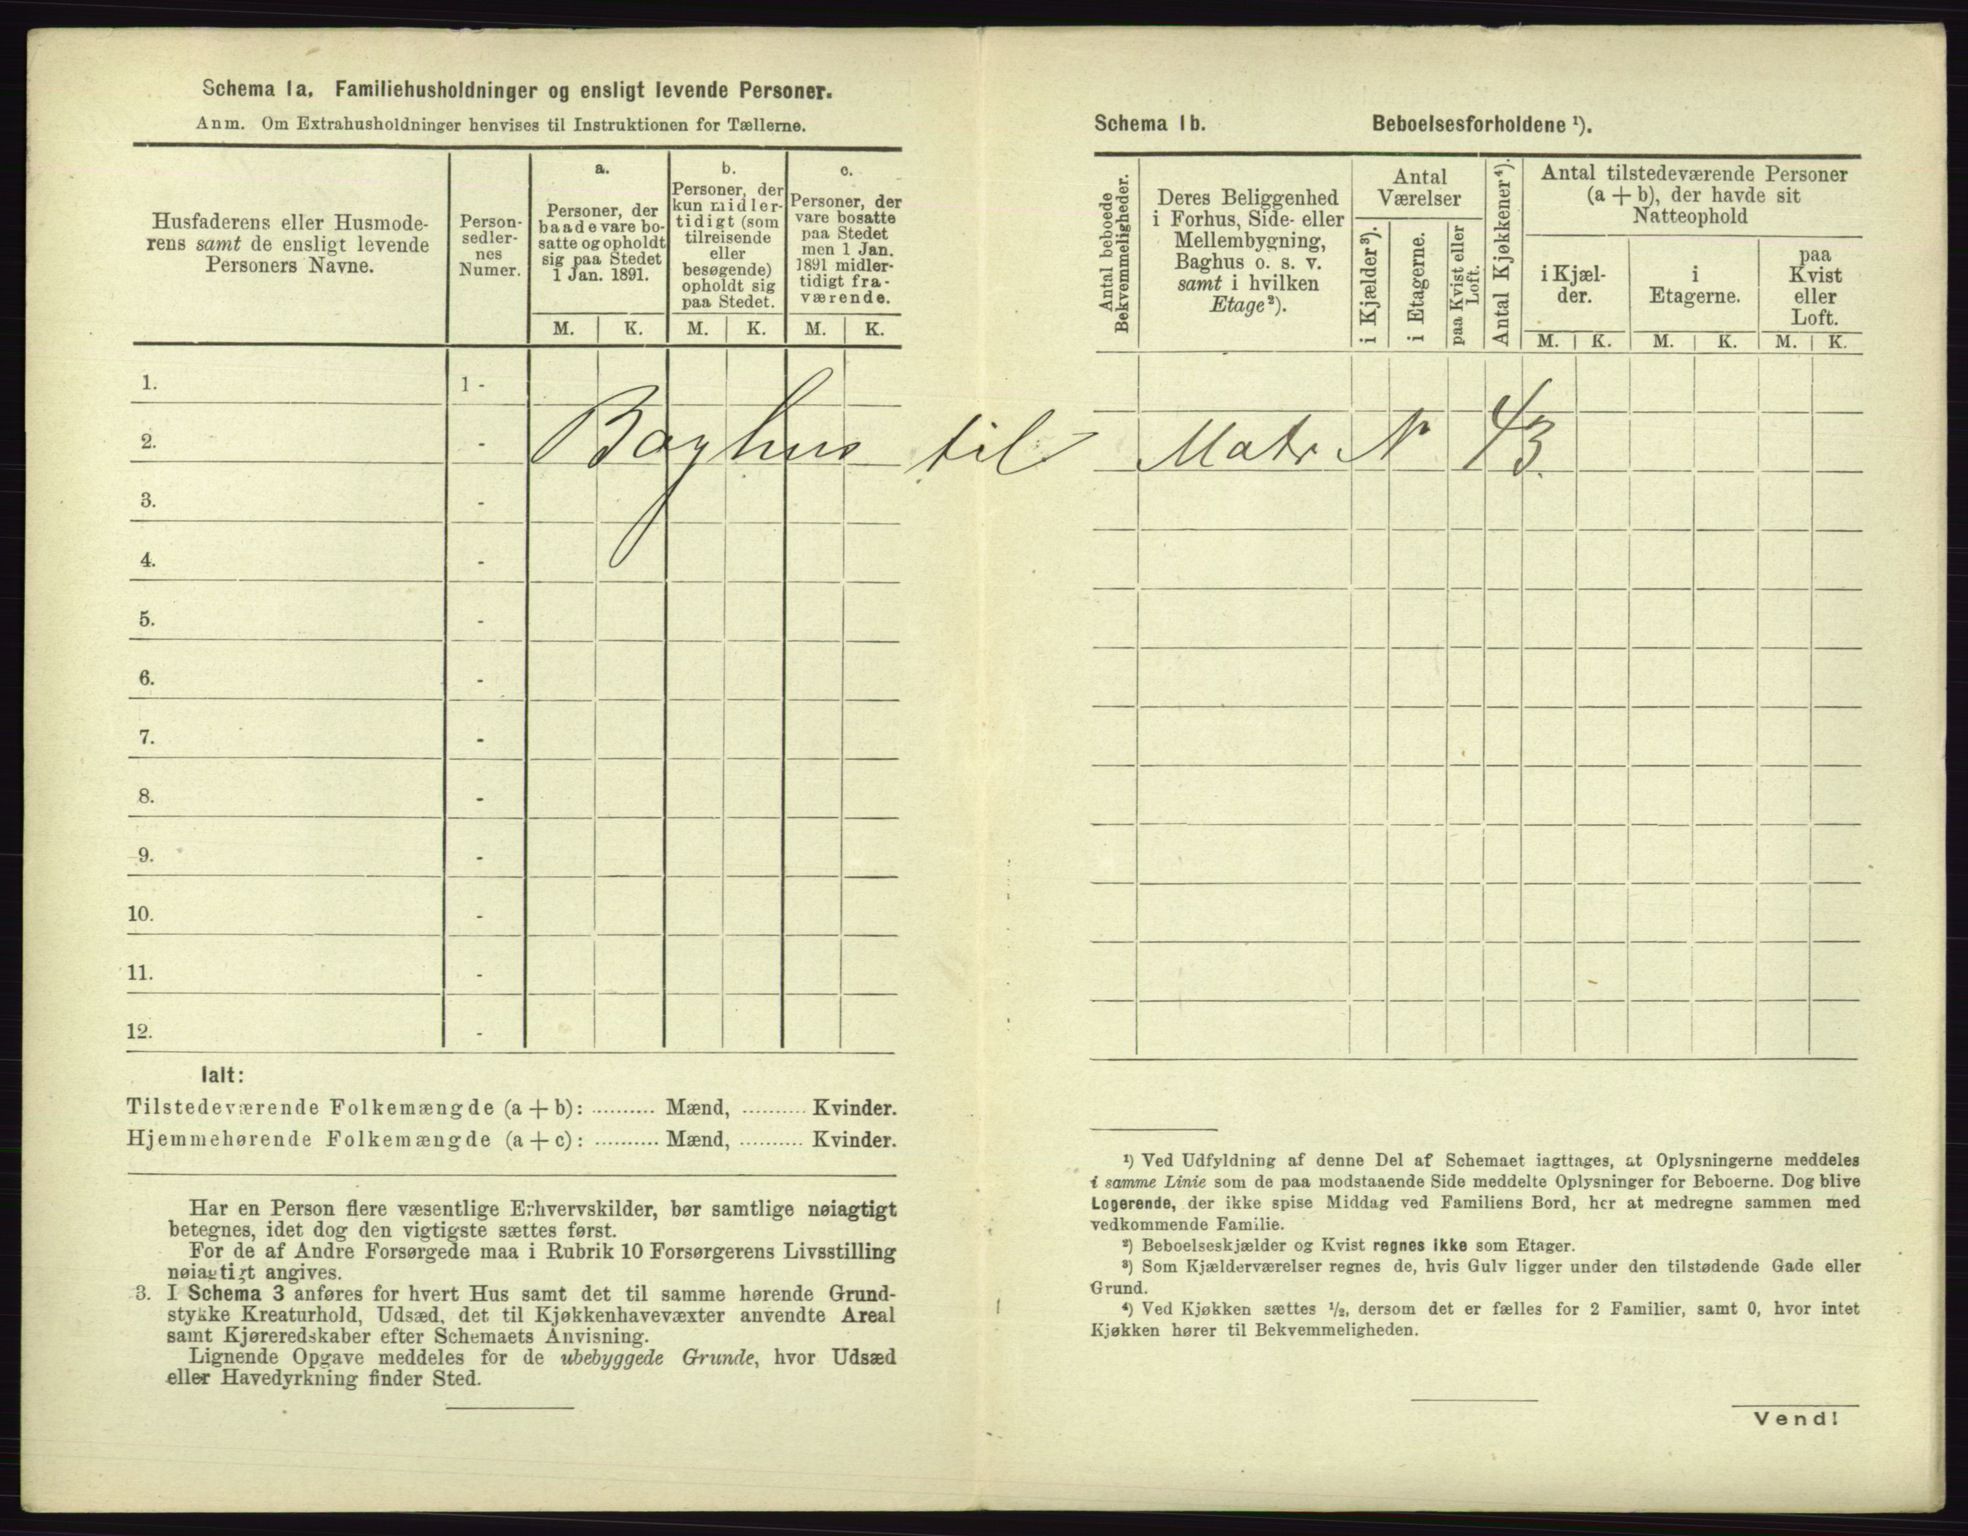 Schema 1a. Familiehusholdninger og ensligt levende Personer.
Anm. Om Extrahusholdninger henvises til Instruktionen for Tællerne.
Husfaderens eller Husmode-
rens samt de ensligt levende
Personers Navne.
Person-
sedler-
nes
Numer.
a.
Personer, der
baade vare bo-
satte og opholdt
sig paa Stedet
1 Jan. 1891.
b.
Personer, der
kun midler-
tidigt (som
tilreisende
eller
besøgende)
opholdt sig
paa Stedet.
c.
Personer, der
vare bosatte
paa Stedet
men 1 Jan.
1891 midler-
tidigt fra-
værende.
M. K. M. K. M. K.
1. 1 -
2. - Baghus til
3. -
4. -
5. -
6. -
7. -
8. -
9. -
10. -
11. -
12. -
Ialt:
Tilstedeværende Folkemængde (a + b): .......... Mænd, .......... Kvinder.
Hjemmehørende Folkemængde (a + c): .......... Mænd, .......... Kvinder.
Har en Person flere væsentlige Erhvervskilder, bør samtlige nøiagtigt
betegnes, idet dog den vigtigste sættes først.
For de af Andre Forsørgede maa i Rubrik 10 Forsørgerens Livsstilling
nøiagtigt angives.
3. I Schema 3 anføres for hvert Hus samt det til samme hørende Grund-
stykke Kreaturhold, Udsæd, det til Kjøkkenhavevæxter anvendte Areal
samt Kjøreredskaber efter Schemaets Anvisning.
Lignende Opgave meddeles for de ubebyggede Grunde, hvor Udsæd
eller Havedyrkning finder Sted.
Schema 1b. Beboelsesforholdene ¹).
Antal beboede
Bekvemmeligheder.
Deres Beliggenhed
i Forhus, Side- eller
Mellembygning,
Baghus o. s. v.
samt i hvilken
Etage²).
Antal
Værelser
i Kjælder³).
i Etagerne.
paa Kvist eller
Loft.
Antal Kjøkkener⁴).
Antal tilstedeværende Personer
(a + b), der havde sit
Natteophold
i Kjæl-
der.
i
Etagerne.
paa
Kvist
eller
Loft.
M. K. M. K. M. K.
Matr N 43.
¹) Ved Udfyldning af denne Del af Schemaet iagttages, at Oplysningerne meddeles
i samme Linie som de paa modstaaende Side meddelte Oplysninger for Beboerne. Dog blive
Logerende, der ikke spise Middag ved Familiens Bord, her at medregne sammen med
vedkommende Familie.
²) Beboelseskjælder og Kvist regnes ikke som Etager.
³) Som Kjælderværelser regnes de, hvis Gulv ligger under den tilstødende Gade eller
Grund.
⁴) Ved Kjøkken sættes ½, dersom det er fælles for 2 Familier, samt 0, hvor intet
Kjøkken hører til Bekvemmeligheden.
Vend!